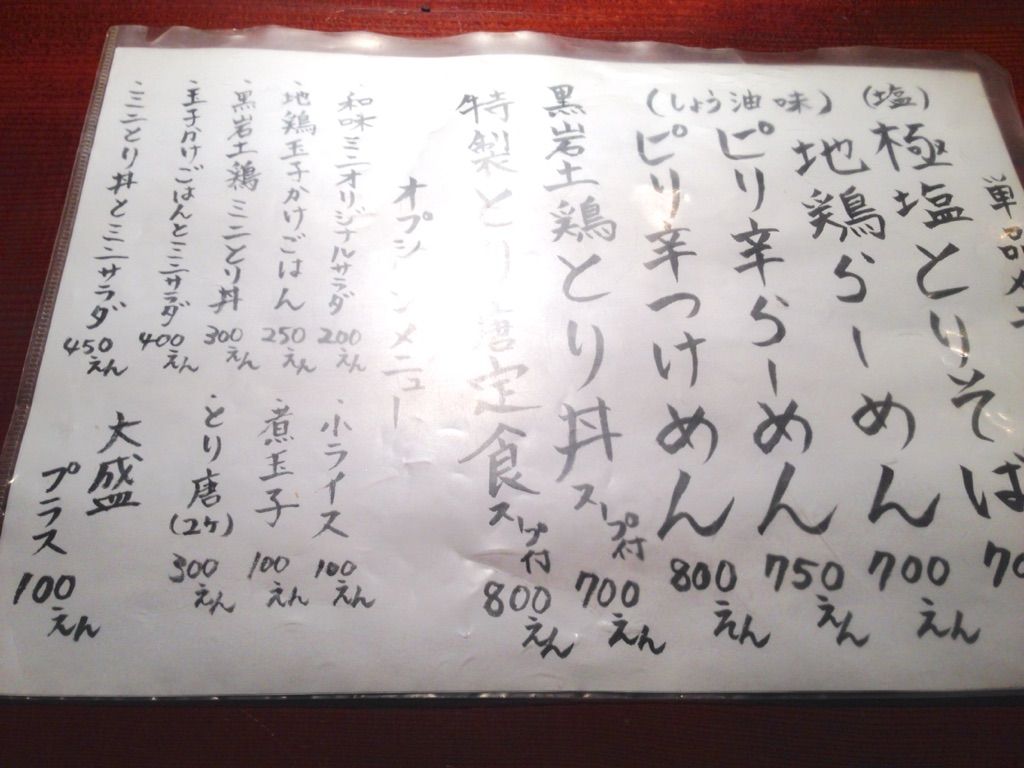 単品メニ
(塩)
極塩とりそば 70
地鶏らーめん 700えん
(しょう油味)
ピリ辛らーめん 750えん
ピリ辛つけめん 800えん
黒岩土鶏とり丼 スープ付 700えん
特製とり唐定食 スープ付 800えん
オプションメニュー
・和味ミニオリジナルサラダ 200えん
・地鶏玉子かけごはん 250えん
・黒岩土鶏ミニとり丼 300えん
・玉子かけごはんとミニサラダ 400えん
・ミニとり丼とミニサラダ 450えん
・小ライス 100えん
・煮玉子 100えん
・とり唐(2ケ) 300えん
大盛
プラス 100えん